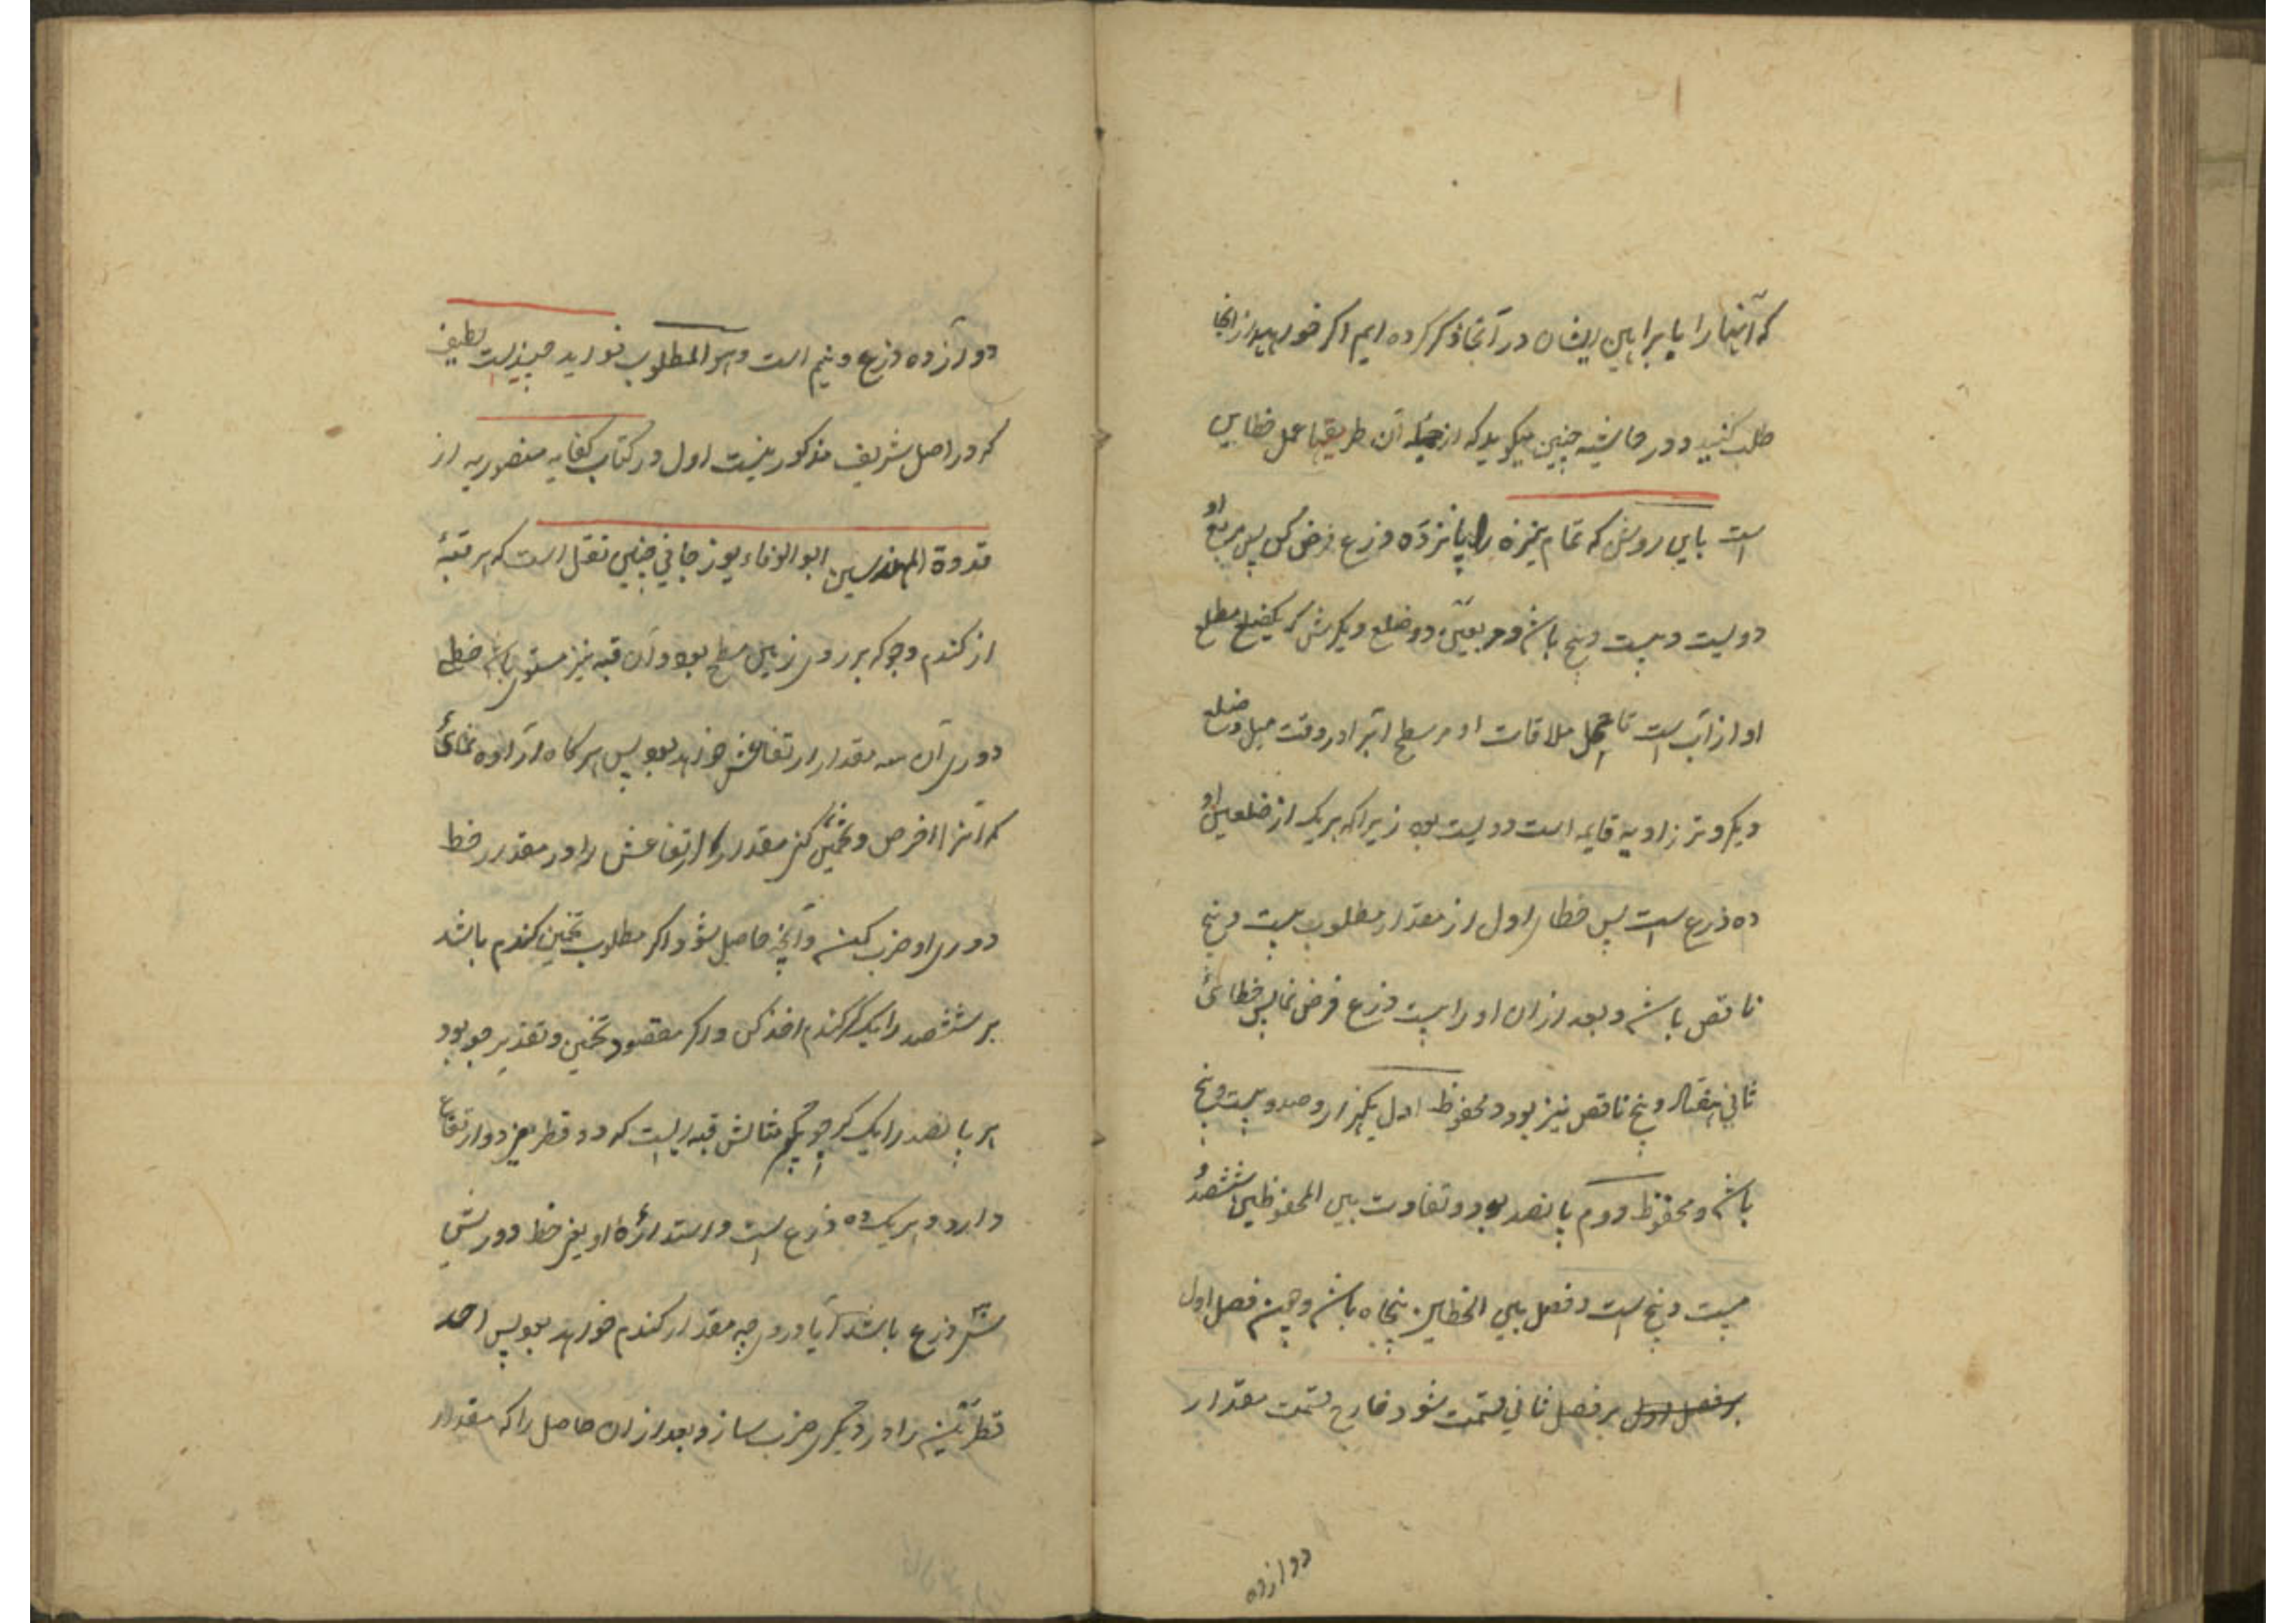 که آنها را با براهین ایشان در آنجا ذکر کرده ایم اگر خواهید از آنجا
طلب کنید و در حاشیه چنین میگوید که از جمله آن طریقها عمل خطایین
است باین روش که تمام نیزه را پانزده ذرع فرض کن پس مربع او
دویست و بیست و پنج باشد و مربعین دو ضلع دیگرش که یکضلع مطلع
او از آب است تا محل ملاقات او مر سطح آبرا در وقت میل و ضلع
دیگر وتر زاویه قایمه است دویست بود زیرا که هر یک از ضلعین او
ده ذرع است پس خطا اول از مقدار مطلوب بیست و پنج
ناقص باشد و بعد از ان او را بیست ذرع فرض نما پس خطائ
ثانی هفتاد و پنج ناقص نیز بود و محفوظ اول یکهزار و صد و بیست و پنج
باشد و محفوظ دوم پانصد بود و تفاوت بین المحفوظین ششصد و
بیست و پنج است و فصل بین الخطایین پنجاه باشد و همین فصل اول
بر فصل اول بر فصل ثانی قسمت شود خارج قسمت مقدار
دوازده
دوازده ذرع و نیم است و هو المطلوب فواید چندیست لطیف
که در اصل شریف مذکور نیست اول در کتاب کفایه منصوریه از
قدوة المهندسین ابو الوفاء بوزجانی چنین نقل است که هر قبهٔ
از کندم و جو که بر روی زمین مسطح بود و آن قبه نیز مستوی باشد خط
دوری آن سه مقدار ارتفاعش خواهد بود پس هر کاه اراده نمائ
که آنرا فرض و تخمین کنی مقدار ارتفاعش را در مقدار خط
دوری او ضرب کن و آنچه حاصل شود اکر مطلوب تخمین کندم باشد
هر ششصد را یک کر کندم اخذ کن و اکر مقصود تخمین و تقدیر جو بود
هر پانصد را یک کر جو کیر مثالش قبه ایست که دو قطر یعنی دو ارتفاع
دارد و هر یک ده ذرع است و استدارهٔ او یعنی خط دورش
ذرع باشد آیا در وی چه مقدار کندم خواهد بود پس احد
قطرین را در دیکری ضرب ساز و بعد از ان حاصل را که مقدار